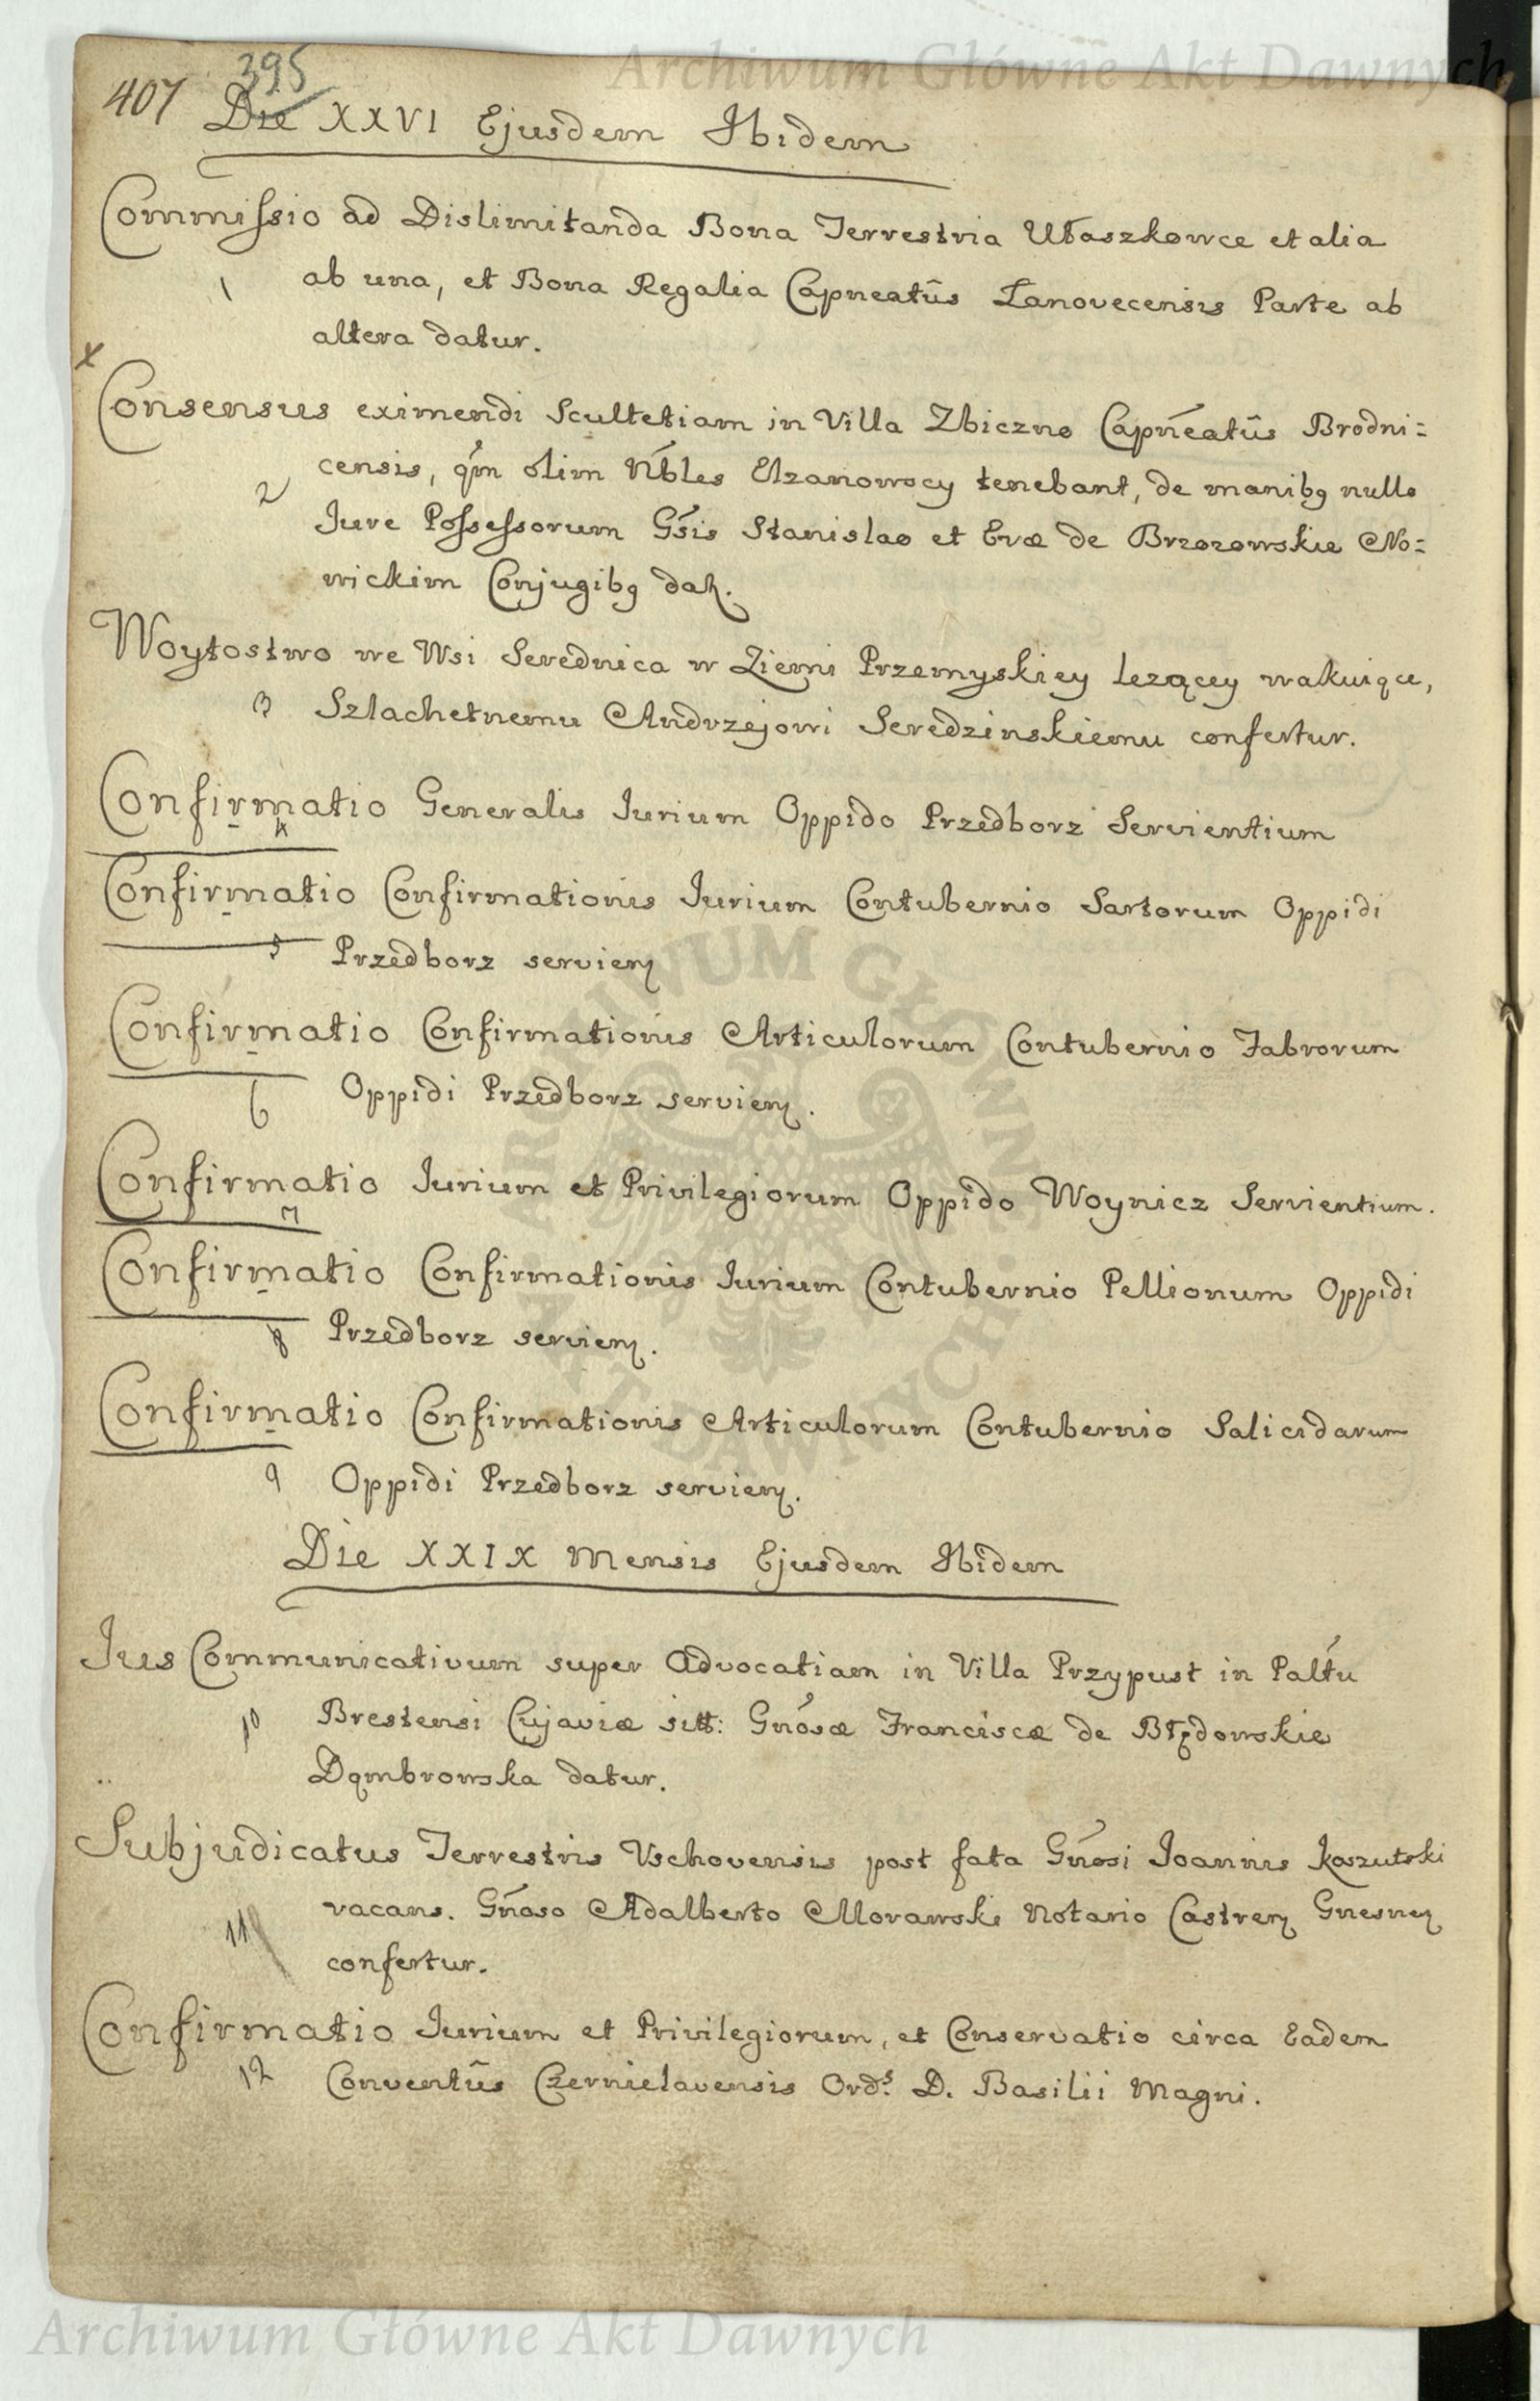 Archiwum Główne Akt Dawnych
407 395
Die XXVI Ejusdem Ibidem
Commissio ad Dislimitanda Bona Terrestria Ułaszkowce et alia
1 ab una, et Bona Regalia Capneatûs Lanovecensis Parte ab
altera datur.
x
Consensus eximendi Scultetiam in Villa Zbiczno Capneatûs Brodni=
censis, qm olim Nbles Elzanowscy tenebant, de manibq nullo
2 Jure Possessorum Gsis Stanislao et Evæ de Brzozowskie No=
wickim Conjugibq dat.
Woytostwo we Wsi Serednica w Ziemi Przemyskiey lezącey wakuiące,
3 Szlachetnemu Andrzejowi Seredzinskiemu confertur.
Confirmatio Generalis Jurium Oppido Przedborz Servientium
4
Confirmatio Confirmationis Jurium Contubernio Sartorum Oppidi
5 Przedborz servien
Confirmatio Confirmationis Articulorum Contubernio Fabrorum
6 Oppidi Przedborz servien.
Confirmatio Jurium et Privilegiorum Oppido Woynicz Servientium.
7
Confirmatio Confirmationis Jurium Contubernio Pellionum Oppidi
8 Przedborz servien.
Confirmatio Confirmationis Articulorum Contubernio Salicidarum
9 Oppidi Przedborz servien.
Die XXIX Mensis Ejusdem Ibidem
Jus Communicativum super Advocatiam in Villa Przypust in Paltu
10 Brestensi Cujaviæ sitt: Gnosæ Franciscæ de Błędowskie
Dąmbrowska datur.
Subjudicatus Terrestris Vschovensis post fata Gnosi Joannis Koszutski
11 vacans. Gnoso Adalberto Morawski Notario Castren Gnesnen
confertur.
Confirmatio Jurium et Privilegiorum, et Conservatio circa Eadem
12 Conventûs Czernielavensis Ords. D. Basilii Magni.
ARCHIWUM GŁÓWNE AKT DAWNYCH
Archiwum Główne Akt Dawnych